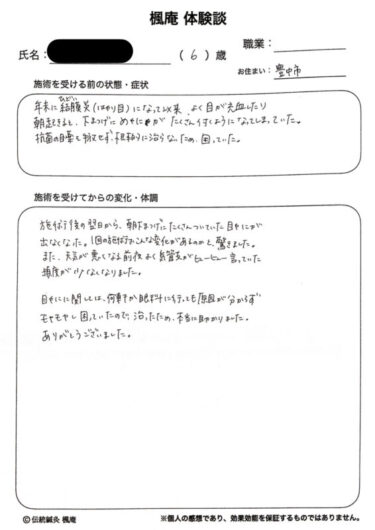 楓庵 体験談
氏名： （ 6 ）歳 職業：
お住まい： 豊中市
施術を受ける前の状態・症状
年末にひどい結膜炎(はやり目)になって以来、よく目が充血したり
朝起きると、下まつげにめやにがたくさん付くようになってしまっていた。
抗菌の目薬も効かせず、根本的に治らないため、困っていた。
施術を受けてからの変化・体調
施術後の翌日から、朝下まつげにたくさんついていた目やにが
出なくなった。1回の施術でこんな変化があるのかと、驚きました。
また、天気が悪くなる前夜よく気管支がヒューヒュー言っていた
頻度が少なくなりました。
目やにに関しては、何軒か眼科に行っても原因が分からず
モヤモヤし困っていたので、治ったため、本当に助かりました。
ありがとうございました。
© 伝統鍼灸 楓庵 ※個人の感想であり、効果効能を保証するものではありません。